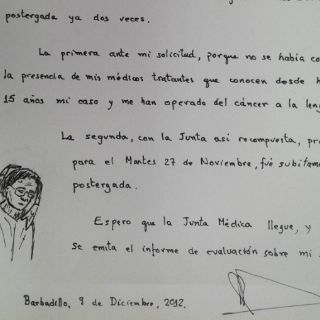 postergada ya dos veces.
La primera ante mi solicitud, porque no se había co
la presencia de mis médicos tratantes que conocen desde h
15 años mi caso y me han operado del cáncer a la leng
La segunda, con la Junta asi recompuesta, pr
para el Martes 27 de Noviembre, fué subitam
postergada.
Espero que la Junta Médica llegue, y
se emita el informe de evaluación sobre mi s
Barbadillo, 9 de Diciembre, 2012.